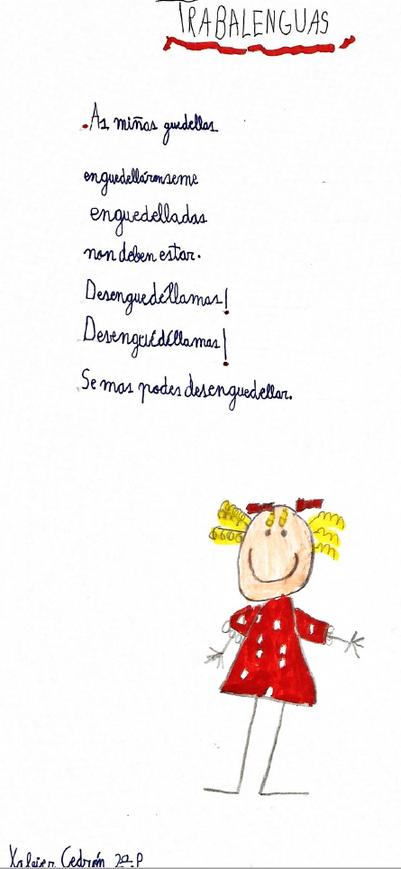 TRABALENGUAS
. As miñas guedellas
enguedelláronseme
enguedelladas
non deben estar.
Desenguedéllamas!
Desenguedéllamas!
Se mas podes desenguedellar.
Xabier Cedrón 2º P